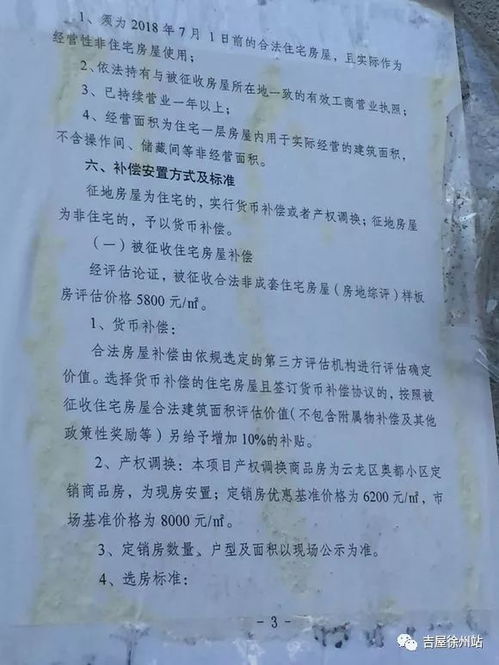 1、须为 2018 年 7 月 1 日前的合法住宅房屋，且实际作为
经营性非住宅房屋使用；
2、依法持有与被征收房屋所在地一致的有效工商营业执照；
3、已持续营业一年以上；
4、经营面积为住宅一层房屋内用于实际经营的建筑面积，
不含操作间、储藏间等非经营面积。
六、补偿安置方式及标准
征地房屋为住宅的，实行货币补偿或者产权调换；征地房屋
为非住宅的，予以货币补偿。
（一）被征收住宅房屋补偿
经评估论证，被征收合法非成套住宅房屋（房地综评）样板
房评估价格 5800 元/㎡。
1、货币补偿：
合法房屋补偿由依规选定的第三方评估机构进行评估确定
价值。选择货币补偿的住宅房屋且签订货币补偿协议的，按照被
征收住宅房屋合法建筑面积评估价值（不包含附属物补偿及其他
政策性奖励等）另给予增加 10%的补贴。
2、产权调换：本项目产权调换商品房为云龙区奥都小区定
销商品房，为现房安置；定销房优惠基准价格为 6200 元/㎡，市
场基准价格为 8000 元/㎡。
3、定销房数量、户型及面积以现场公示为准。
4、选房标准：
- 3 -
吉屋徐州站